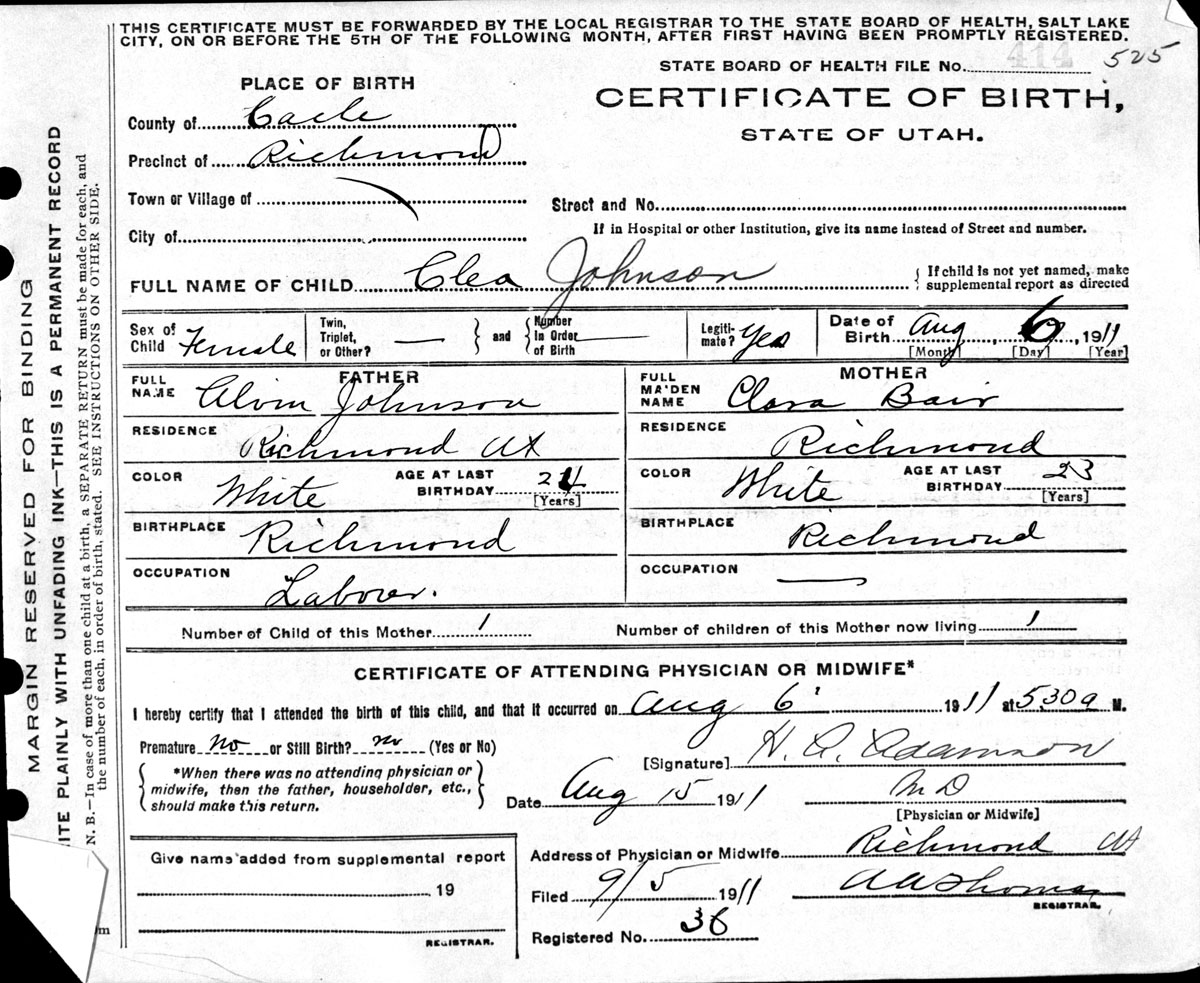 THIS CERTIFICATE MUST BE FORWARDED BY THE LOCAL REGISTRAR TO THE STATE BOARD OF HEALTH, SALT LAKE
CITY, ON OR BEFORE THE 5TH OF THE FOLLOWING MONTH, AFTER FIRST HAVING BEEN PROMPTLY REGISTERED.
STATE BOARD OF HEALTH FILE No. 414 525
PLACE OF BIRTH
CERTIFICATE OF BIRTH,
STATE OF UTAH.
County of Cache
Precinct of Richmond
Town or Village of
Street and No.
City of
If in Hospital or other Institution, give its name instead of Street and number.
FULL NAME OF CHILD Clea Johnson
If child is not yet named, make
supplemental report as directed
Sex of Child Female
Twin, Triplet, or Other? —
and
Number In Order of Birth —
Legiti-mate? Yes
Date of Birth Aug 6, 1911
[Month] [Day] [Year]
FATHER
FULL NAME Alvin Johnson
MOTHER
FULL MAIDEN NAME Clara Bair
RESIDENCE Richmond Ut
RESIDENCE Richmond
COLOR White
AGE AT LAST BIRTHDAY
[Years]
COLOR White
AGE AT LAST BIRTHDAY 23
[Years]
BIRTHPLACE Richmond
BIRTHPLACE Richmond
OCCUPATION Laborer.
OCCUPATION —
Number of Child of this Mother 1
Number of children of this Mother now living 1
CERTIFICATE OF ATTENDING PHYSICIAN OR MIDWIFE*
I hereby certify that I attended the birth of this child, and that it occurred on Aug 6 1911 at 530 a M.
Premature no or Still Birth? no (Yes or No)
[Signature] H. A. Adamson
*When there was no attending physician or
midwife, then the father, householder, etc.,
should make this return.
Date Aug 15 1911
M D
[Physician or Midwife]
Give name added from supplemental report
19
REGISTRAR.
Address of Physician or Midwife Richmond Ut
Filed 9/5 1911
A A Thomas
REGISTRAR.
Registered No. 36
MARGIN RESERVED FOR BINDING
ITE PLAINLY WITH UNFADING INK—THIS IS A PERMANENT RECORD
N. B.—In case of more than one child at a birth, a SEPARATE RETURN must be made for each, and
the number of each, in order of birth, stated. SEE INSTRUCTIONS ON OTHER SIDE.